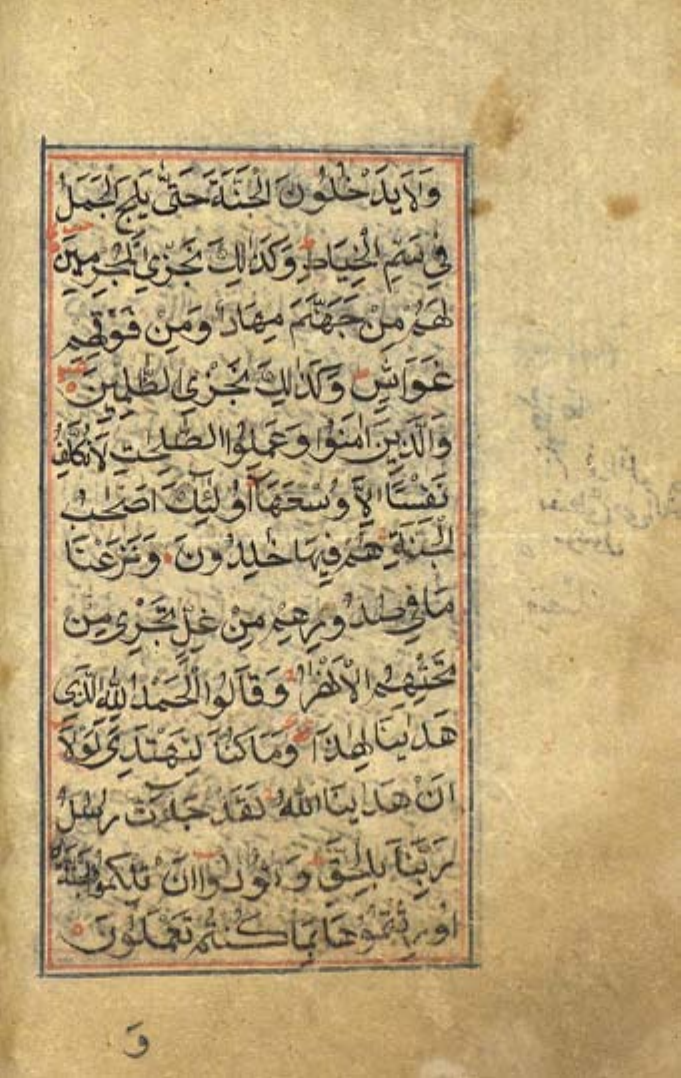 وَلَا يَدْخُلُونَ الْجَنَّةَ حَتّٰى يَلِجَ الْجَمَلُ
فِي سَمِّ الْخِيَاطِ وَكَذٰلِكَ نَجْزِي الْمُجْرِمِينَ
لَهُمْ مِنْ جَهَنَّمَ مِهَادٌ وَمِنْ فَوْقِهِمْ
غَوَاشٍ وَكَذٰلِكَ نَجْزِي الظّٰلِمِينَ
وَالَّذِينَ اٰمَنُوا وَعَمِلُوا الصّٰلِحٰتِ لَا نُكَلِّفُ
نَفْسًا اِلَّا وُسْعَهَا اُولٰئِكَ اَصْحٰبُ
الْجَنَّةِ هُمْ فِيهَا خٰلِدُونَ وَنَزَعْنَا
مَا فِي صُدُورِهِمْ مِنْ غِلٍّ تَجْرِي مِنْ
تَحْتِهِمُ الْاَنْهٰرُ وَقَالُوا الْحَمْدُ لِلّٰهِ الَّذِي
هَدٰينَا لِهٰذَا وَمَا كُنَّا لِنَهْتَدِيَ لَوْلَا
اَنْ هَدٰينَا اللّٰهُ لَقَدْ جَاءَتْ رُسُلُ
رَبِّنَا بِالْحَقِّ وَنُودُوا اَنْ تِلْكُمُ الْجَنَّةُ
اُورِثْتُمُوهَا بِمَا كُنْتُمْ تَعْمَلُونَ
وَ